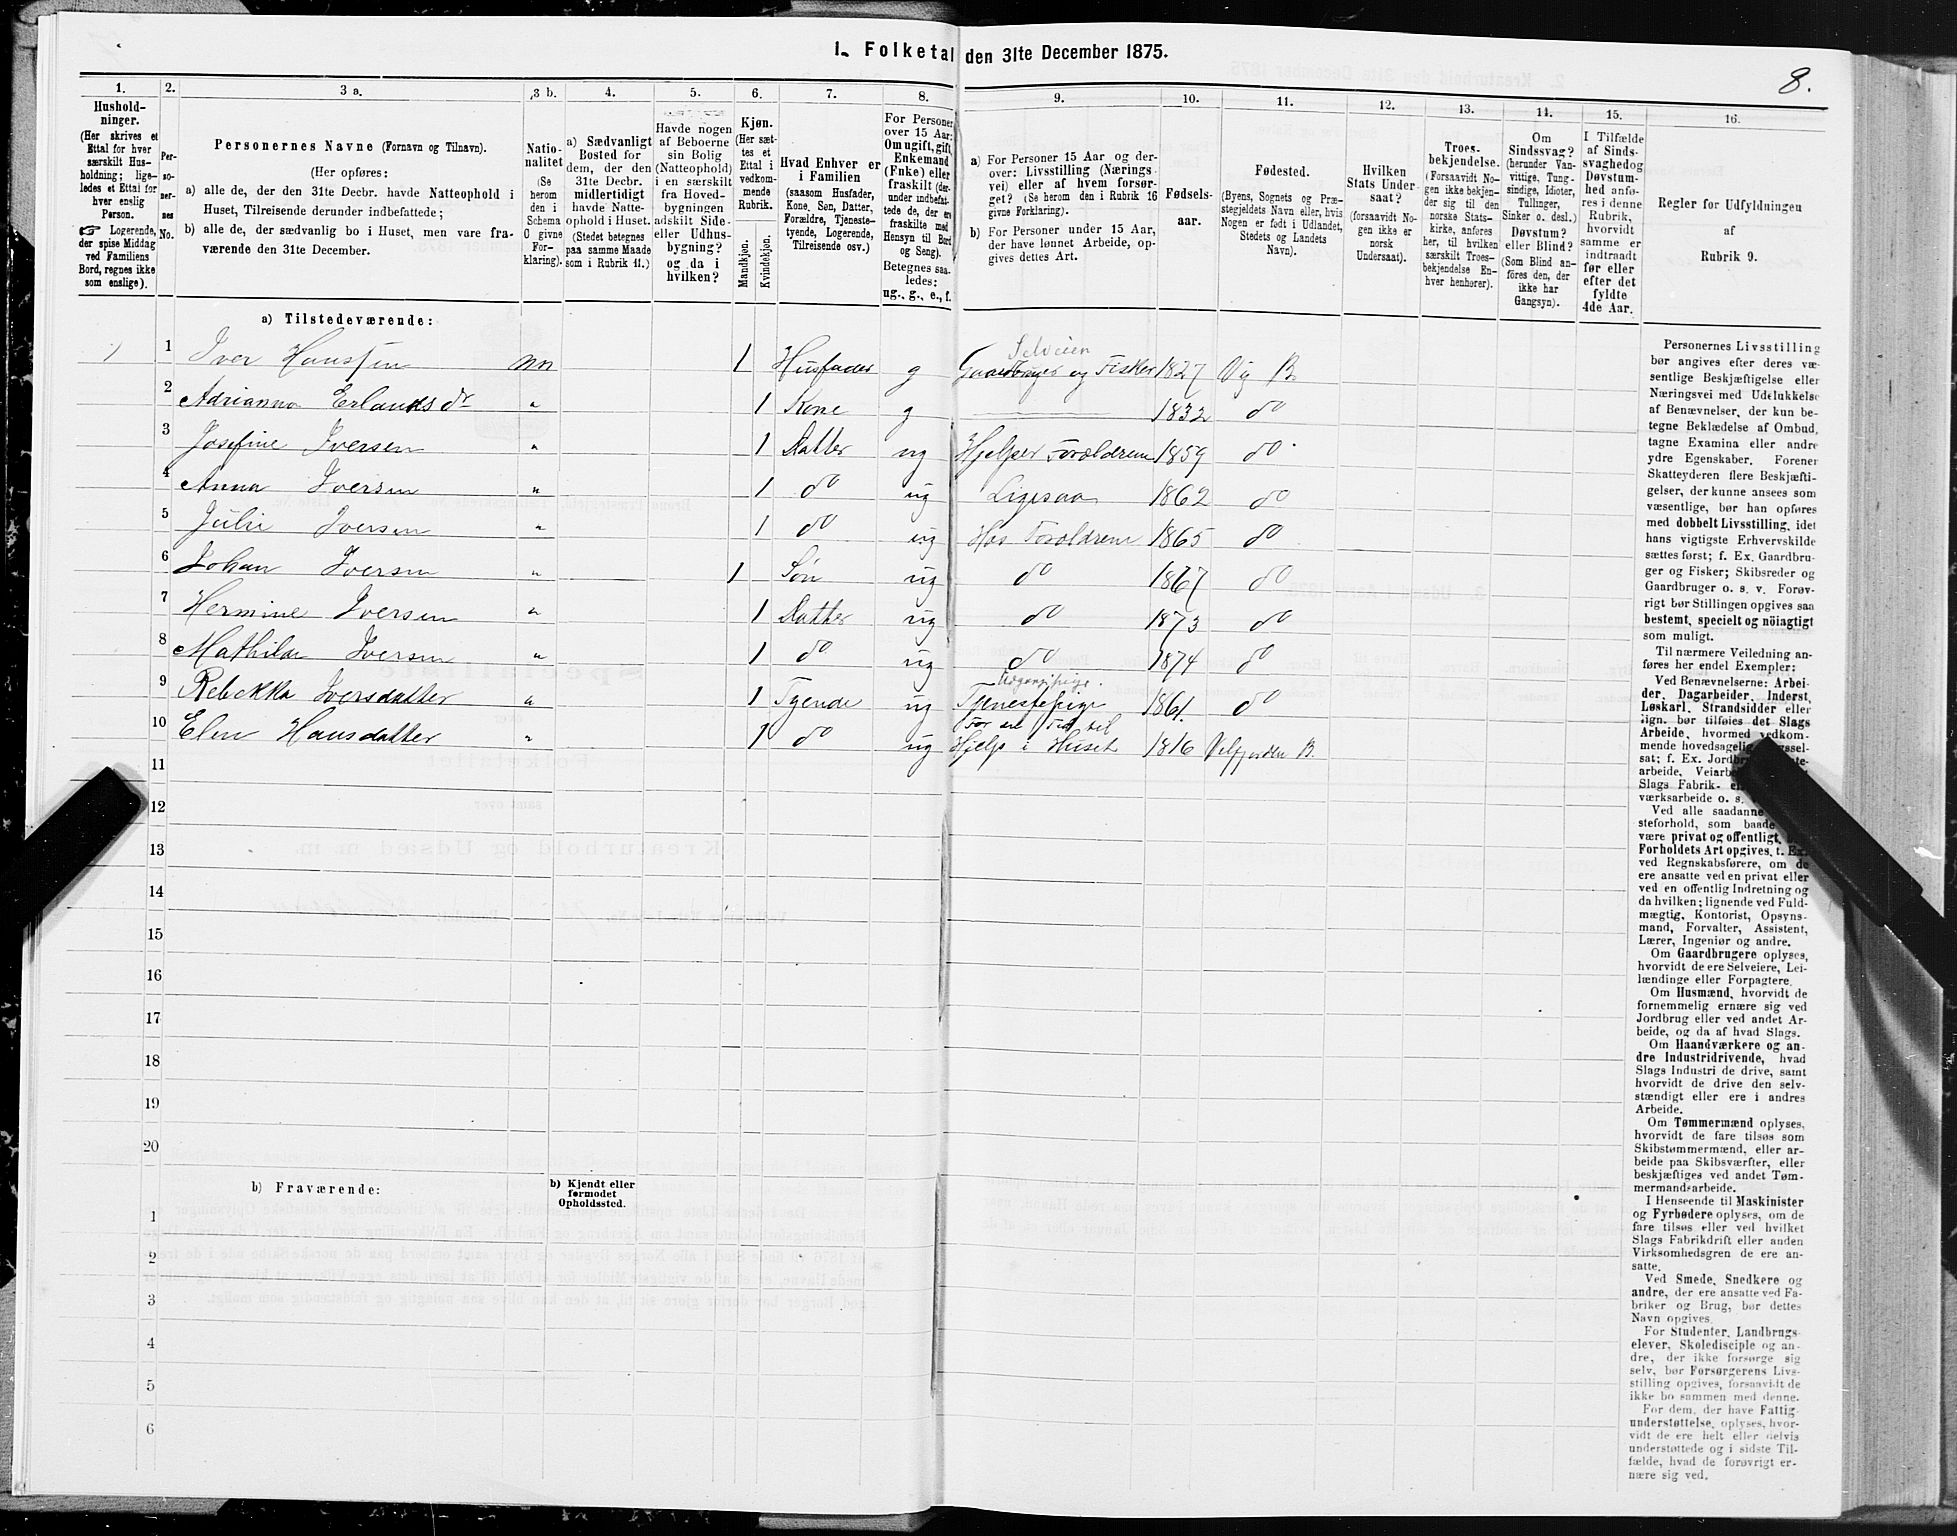 1. Folketal den 31te December 1875.
8.
1.
Hushold-
ninger.
(Her skrives et
Ettal for hver
særskilt Hus-
holdning; lige-
ledes et Ettal for
hver enslig
Person.
☞ Logerende,
der spise Middag
ved Familiens
Bord, regnes ikke
som enslige).
2.
Per-
so-
ner-
nes
No.
3 a.
Personernes Navne (Fornavn og Tilnavn).
(Her opføres:
a) alle de, der den 31te Decbr. havde Natteophold i
Huset, Tilreisende derunder indbefattede;
b) alle de, der sædvanlig bo i Huset, men vare fra-
værende den 31te December.
3 b.
Natio-
nalitet
(Se
herom
den i
Schema
O givne
For-
klaring).
4.
a) Sædvanligt
Bosted for
dem, der den
31te Decbr.
midlertidigt
havde Natte-
ophold i Huset.
(Stedet betegnes
paa samme Maade
som i Rubrik 11.)
5.
Havde nogen
af Beboerne
sin Bolig
(Natteophold)
i en særskilt
fra Hoved-
bygningen
adskilt Side-
eller Udhus-
bygning?
og da i
hvilken?
6.
Kjøn.
(Her sæt-
tes et
Ettal i
vedkom-
mende
Rubrik.
Mandkjøn.
Kvindekjøn.
7.
Hvad Enhver er
i Familien
(saasom Husfader,
Kone, Søn, Datter,
Forældre, Tjeneste-
tyende, Logerende,
Tilreisende osv.)
8.
For Personer
over 15 Aar:
Om ugift, gift,
Enkemand
(Enke) eller
fraskilt (der-
under indbefat-
tede de, der ere
fraskilte med
Hensyn til Bord
og Seng).
Betegnes saa-
ledes:
ug., g., e., f.
9.
a) For Personer 15 Aar og der-
over: Livsstilling (Nærings-
vei) eller af hvem forsør-
get? (Se herom den i Rubrik 16
givne Forklaring).
b) For Personer under 15 Aar,
der have lønnet Arbeide, op-
gives dettes Art.
10.
Fødsels-
aar.
11.
Fødested.
(Byens, Sognets og Præ-
stegjeldets Navn eller, hvis
Nogen er født i Udlandet,
Stedets og Landets
Navn).
12.
Hvilken
Stats Under-
saat?
(forsaavidt No-
gen ikke er
norsk
Undersaat).
13.
Troes-
bekjendelse.
(Forsaavidt No-
gen ikke bekjen-
der sig til den
norske Stats-
kirke, anføres
her, til hvilken
særskilt Troes-
bekjendelse En-
hver henhører).
14.
Om
Sindssvag?
(herunder Van-
vittige, Tung-
sindige, Idioter,
Tullinger,
Sinker o. desl.)
Døvstum?
eller Blind?
(Som Blind an-
føres den, der
ikke har
Gangsyn).
15.
I Tilfælde
af Sinds-
svaghed og
Døvstum-
hed anfø-
res i denne
Rubrik,
hvorvidt
samme er
indtraadt
før eller
efter det
fyldte
4de Aar.
16.
Regler for Udfyldningen
af
Rubrik 9.
a) Tilstedeværende:
Selveier
1 1 Iver Hanssen nn 1 Husfader g Gaardbruger og Fisker 1827 Vig B.
2 Adrianna Erlandsdr „ 1 Kone g 1832 do
3 Josefine Iversen „ 1 Datter ug Hjelper Forældrene 1859 do
4 Anna Iversen „ 1 do ug Ligesaa 1862 do
5 Julie Iversen „ 1 do ug Hos Forældrene 1865 do
6 Johan Iversen „ 1 Søn ug do 1867 do
7 Hermine Iversen „ 1 Datter ug do 1873 do
8 Mathilde Iversen „ 1 do ug do 1874 do
9 Rebekka Iversdatter „ 1 Tyende ug Tjenestepige 1861. do
For en Tid til
10 Elen Hansdatter „ 1 do ug Hjelp i Huset 1816 Velfjorden B.
11
12
13
14
15
16
17
18
19
20
b) Fraværende:
b) Kjendt eller
formodet
Opholdssted.
1
2
3
4
5
6
Personernes Livsstilling
bør angives efter deres væ-
sentlige Beskjæftigelse eller
Næringsvei med Udelukkelse
af Benævnelser, der kun be-
tegne Beklædelse af Ombud,
tagne Examina eller andre
ydre Egenskaber. Forener
Skatteyderen flere Beskjæfti-
gelser, der kunne ansees som
væsentlige, bør han opføres
med dobbelt Livsstilling, idet
hans vigtigste Erhvervskilde
sættes først; f. Ex. Gaardbru-
ger og Fisker; Skibsreder og
Gaardbruger o. s. v. Forøv-
rigt bør Stillingen opgives saa
bestemt, specielt og nöiagtigt
som muligt.
Til nærmere Veiledning an-
føres her endel Exempler:
Ved Benævnelserne: Arbei-
der, Dagarbeider, Inderst,
Løskarl, Strandsidder eller
lign. bør tilføies det Slags
Arbeide, hvormed vedkom-
mende hovedsagelig
sat; f. Ex.
arbeide,
Slags Fabrik-
værksarbeide o. s.
Ved alle saadanne
steforhold, som baade
være privat og offentligt,
Forholdets Art opgives, t. Ex.
ved Regnskabsførere, om de
ere ansatte ved en privat eller
ved en offentlig Indretning og
da hvilken; lignende ved Fuld-
mægtig, Kontorist, Opsyns-
mand, Forvalter, Assistent,
Lærer, Ingeniør og andre.
Om Gaardbrugere oplyses,
hvorvidt de ere Selveiere, Lei-
lændinge eller Forpagtere.
Om Husmænd, hvorvidt de
fornemmelig ernære sig ved
Jordbrug eller ved andet Ar-
beide, og da af hvad Slags.
Om Haandværkere og an-
dre Industridrivende, hvad
Slags Industri de drive, samt
hvorvidt de drive den selv-
stændigt eller ere i andres
Arbeide.
Om Tømmermænd oplyses,
hvorvidt de fare tilsøs som
Skibstømmermænd, eller ar-
beide paa Skibsværfter, eller
beskjæftiges ved andet Tøm-
mermandsarbeide.
I Henseende til Maskinister
og Fyrbødere oplyses, om de
fare tilsøs eller ved hvilket
Slags Fabrikdrift eller anden
Virksomhedsgren de ere an-
satte.
Ved Smede, Snedkere og
andre, der ere ansatte ved Fa-
briker og Brug, bør dettes
Navn opgives.
For Studenter, Landbrugs-
elever, Skoledisciple og an-
dre, der ikke forsørge sig
selv, bør Forsørgerens Livs-
stilling opgives, forsaavidt de
ikke bo sammen med denne.
For dem, der have Fattig-
understøttelse, oplyses, hvor-
vidt de ere helt eller delvis
understøttede og i sidste Til-
fælde, hvad de forøvrigt er-
nære sig ved.